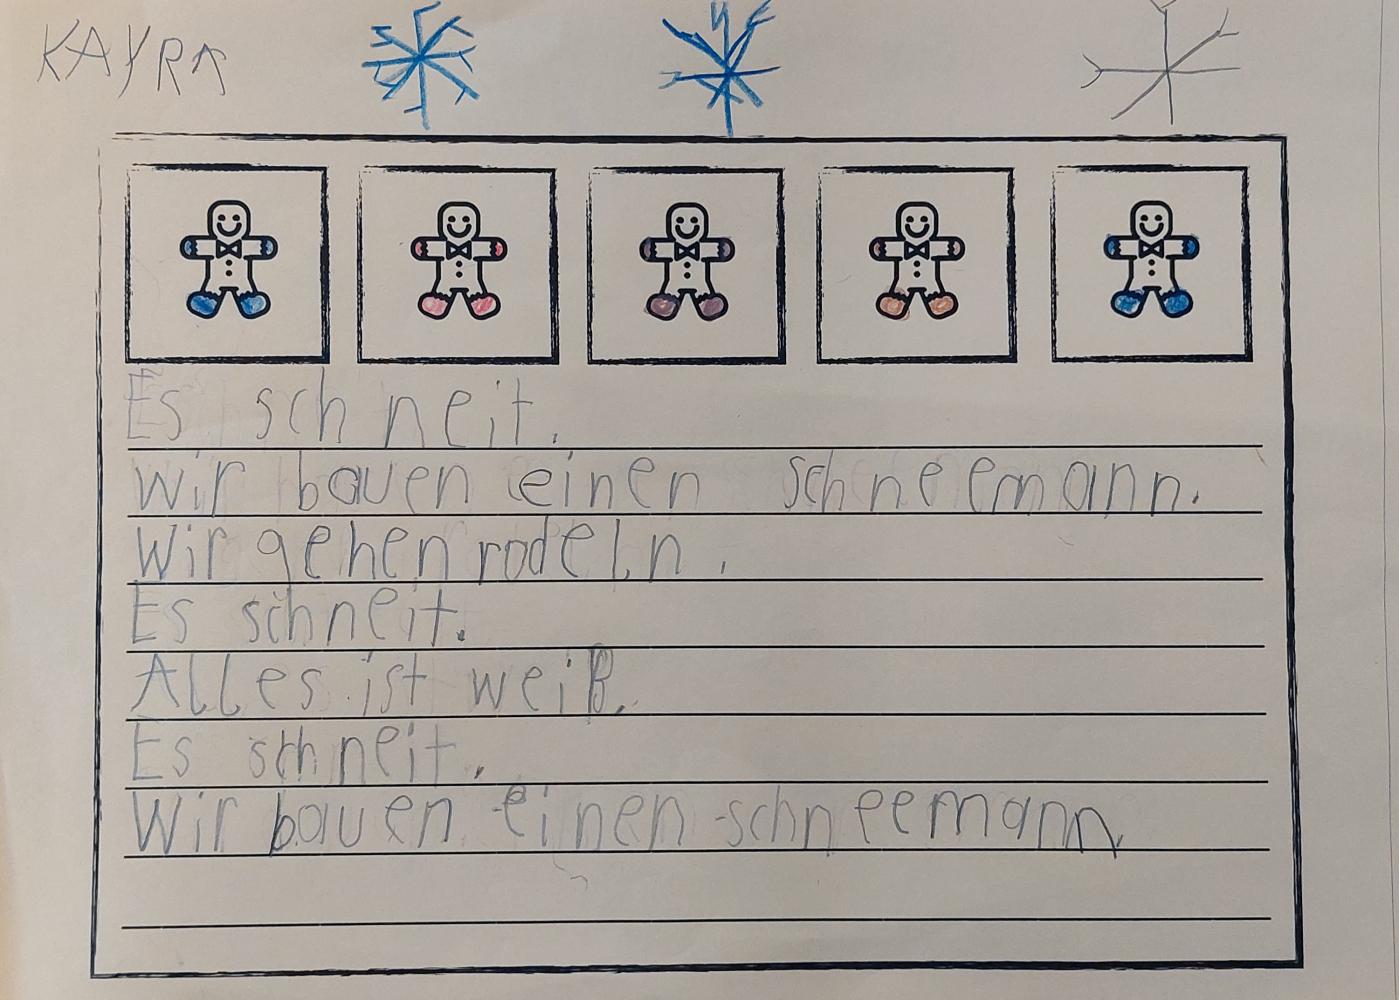 KAYRA
Es schneit.
Wir bauen einen schneemann.
Wir gehen rodeln.
Es schneit.
Alles ist weiß.
Es schneit.
Wir bauen einen schneemann.